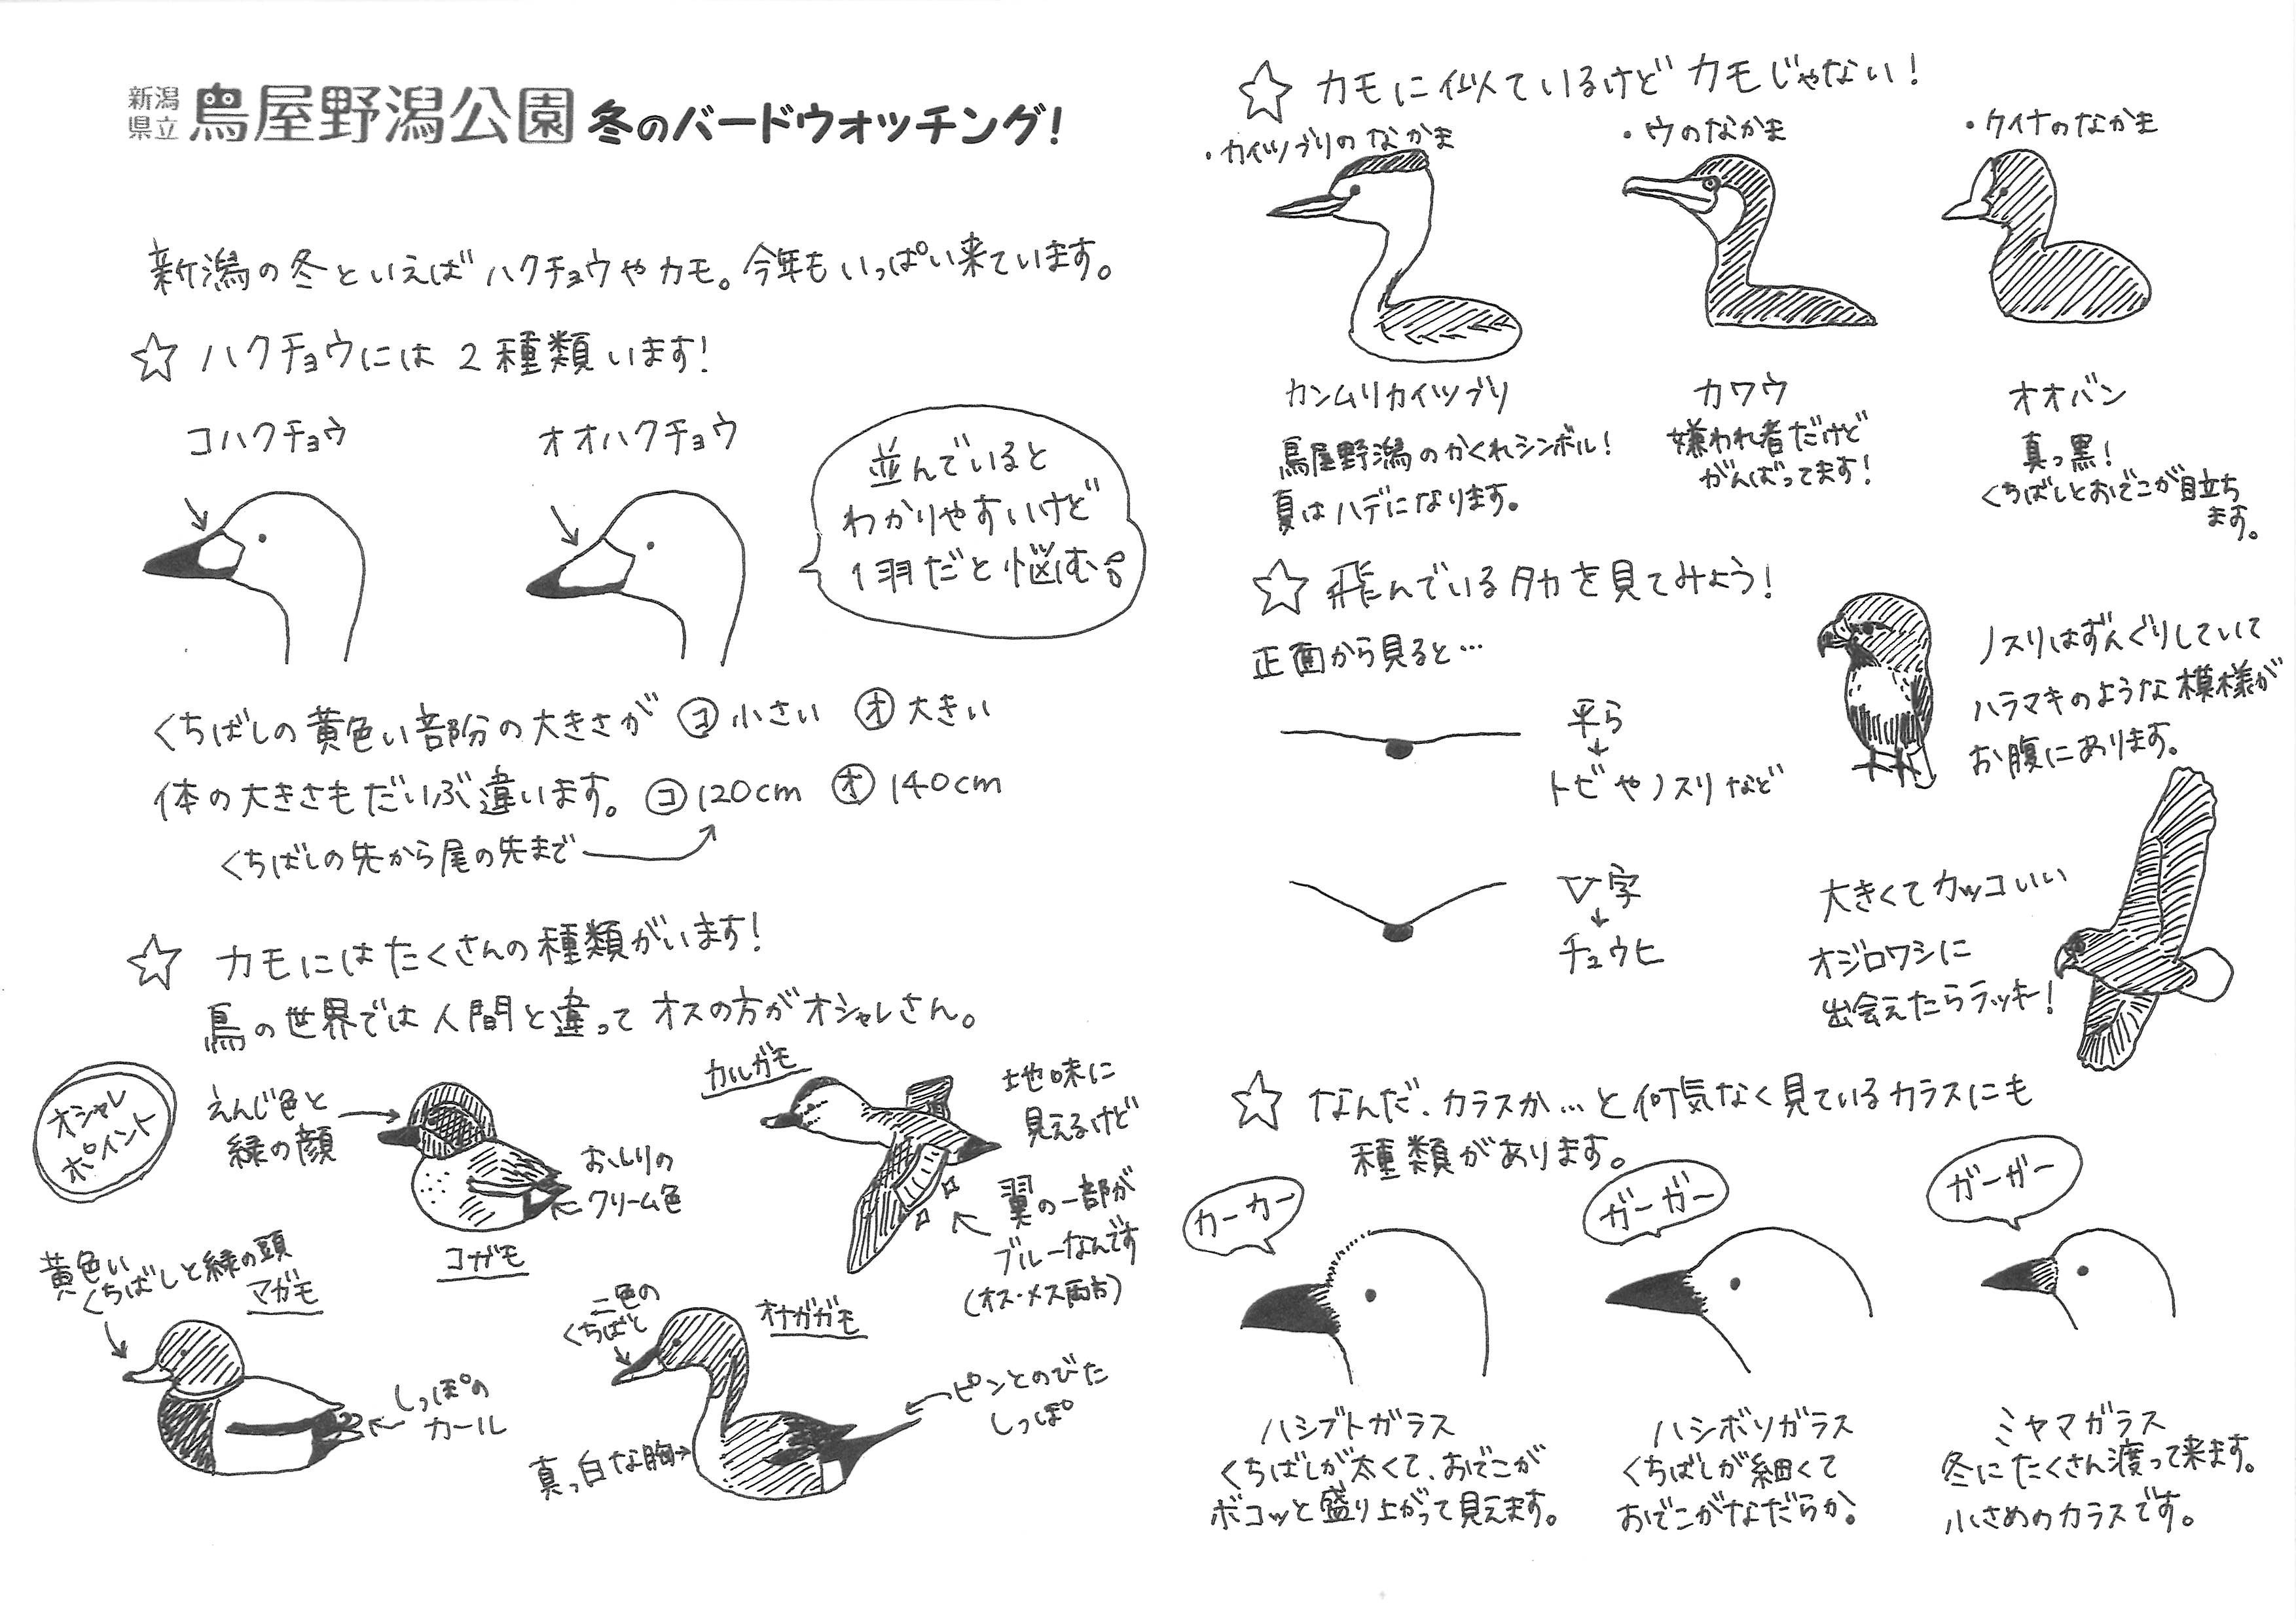 新潟県立 鳥屋野潟公園 冬のバードウォッチング！
新潟の冬といえばハクチョウやカモ。今年もいっぱい来ています。
☆ ハクチョウには2種類います！
コハクチョウ
オオハクチョウ
並んでいると
わかりやすいけど
1羽だと悩む
くちばしの黄色い部分の大きさが コ 小さい オ 大きい
体の大きさもだいぶ違います。 コ 120cm オ 140cm
くちばしの先から尾の先まで
☆ カモにはたくさんの種類がいます！
鳥の世界では人間と違ってオスの方がオシャレさん。
オシャレ
ポイント
えんじ色と
緑の顔
おしりの
クリーム色
コガモ
カルガモ
地味に
見えるけど
翼の一部が
ブルーなんです
(オス・メス両方)
黄色い
くちばしと緑の頭
マガモ
しっぽの
カール
二色の
くちばし
オナガガモ
ピンとのびた
しっぽ
真っ白な胸
☆ カモに似ているけどカモじゃない！
・カイツブリのなかま
・ウのなかま
・クイナのなかま
カンムリカイツブリ
鳥屋野潟のかくれシンボル！
夏はハデになります。
カワウ
嫌われ者だけど
がんばってます！
オオバン
真っ黒！
くちばしとおでこが目立ち
ます。
☆ 飛んでいるタカを見てみよう！
正面から見ると…
平ら
トビやノスリなど
V字
チュウヒ
ノスリはずんぐりしていて
ハラマキのような模様が
お腹にあります。
大きくてカッコいい
オジロワシに
出会えたらラッキー！
☆ なんだ、カラスか…と何気なく見ているカラスにも
種類があります。
カーカー
ガーガー
ガーガー
ハシブトガラス
くちばしが太くて、おでこが
ボコッと盛り上がって見えます。
ハシボソガラス
くちばしが細くて
おでこがなだらか。
ミヤマガラス
冬にたくさん渡って来ます。
小さめのカラスです。